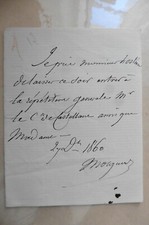 Je prie monsieur
de laisser ce soir entrer à
la répétition générale Mr
le Cte de Castellane ainsi que
Madame
27 Xbre 1860